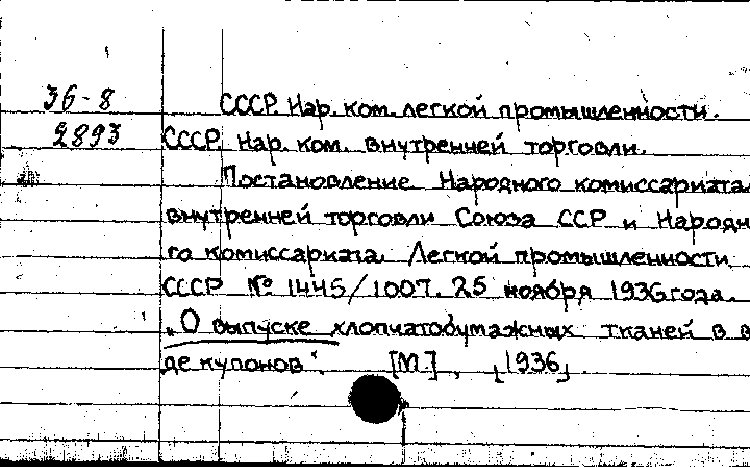 36-8 СССР. Нар. ком. легкой промышленности.
2893 СССР. Нар. ком. внутренней торговли.
Постановление Народного комиссариата
внутренней торговли Союза ССР и Народн
го комиссариата Легкой промышленности
СССР № 1445/1007. 25 ноября 1936 года.
„О выпуске хлопчатобумажных тканей в в
де купонов". [М.], [1936]